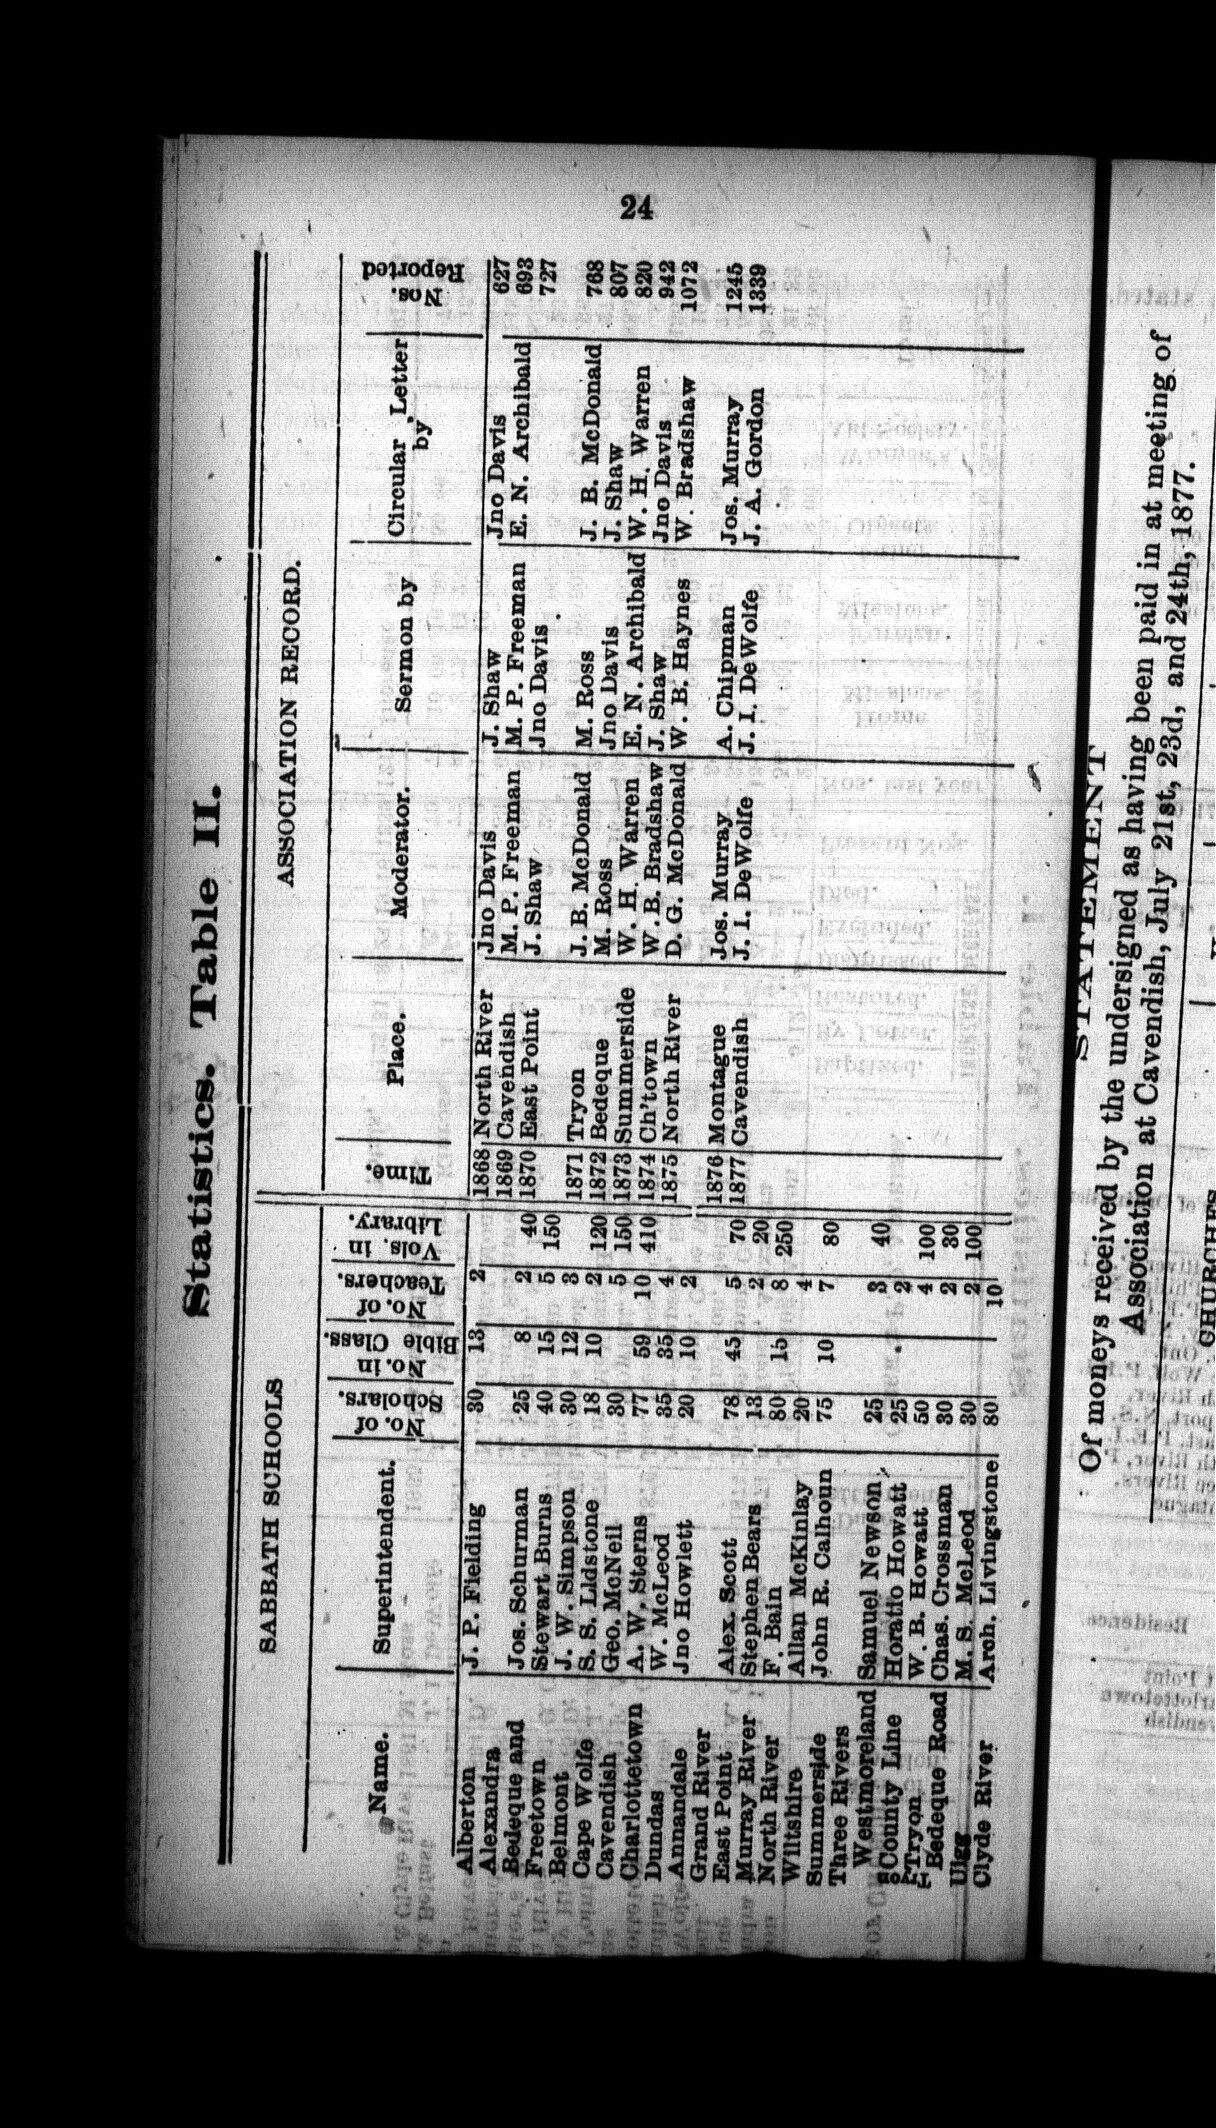 24
Statistics. Table II.
SABBATH SCHOOLS
Name. Superintendent. No. of Scholars. No. in Bible Class No. of Teachers. Vols. in Library.
Alberton J. P. Fielding 30 13 2
Alexandra
Bedeque and Jos. Schurman 25 8 2 40
Freetown Stewart Burns 40 15 5 150
Belmont J. W. Simpson 30 12 3
Cape Wolfe S. S. Lidstone 18 10 2 120
Cavendish Geo. McNeil 30 5 150
Charlottetown A. W. Sterns 77 59 10 410
Dundas W. McLeod 35 35 4
Annandale Jno Howlett 20 10 2
Grand River
East Point Alex. Scott 78 45 5 70
Murray River Stephen Bears 13 2 20
North River F. Bain 80 15 8 250
Wiltshire Allan McKinlay 20 4
Summerside John R. Calhoun 75 10 7 80
Three Rivers
Westmoreland Samuel Newson 25 3 40
County Line Horatio Howatt 25 2
Tryon W. B. Howatt 50 4 100
Bedeque Road Chas. Crossman 30 2 30
Uigg M. S. McLeod 30 2 100
Clyde River Arch. Livingstone 80 10
ASSOCIATION RECORD.
Time. Place. Moderator. Sermon by Circular Letter by Nos. Reported
1868 North River Jno Davis J. Shaw Jno Davis 627
1869 Cavendish M. P. Freeman M. P. Freeman E. N. Archibald 693
1870 East Point J. Shaw Jno Davis 727
1871 Tryon J. B. McDonald M. Ross J. B. McDonald 768
1872 Bedeque M. Ross Jno Davis J. Shaw 807
1873 Summerside W. H. Warren E. N. Archibald W. H. Warren 820
1874 Ch'town W. B. Bradshaw J. Shaw Jno Davis 942
1875 North River D. G. McDonald W. B. Haynes W. Bradshaw 1072
1876 Montague Jos. Murray A. Chipman Jos. Murray 1245
1877 Cavendish J. I. DeWolfe J. I. DeWolfe J. A. Gordon 1339
STATEMENT
Of moneys received by the undersigned as having been paid in at meeting of
Association at Cavendish, July 21st, 23d, and 24th, 1877.
CHURCHES